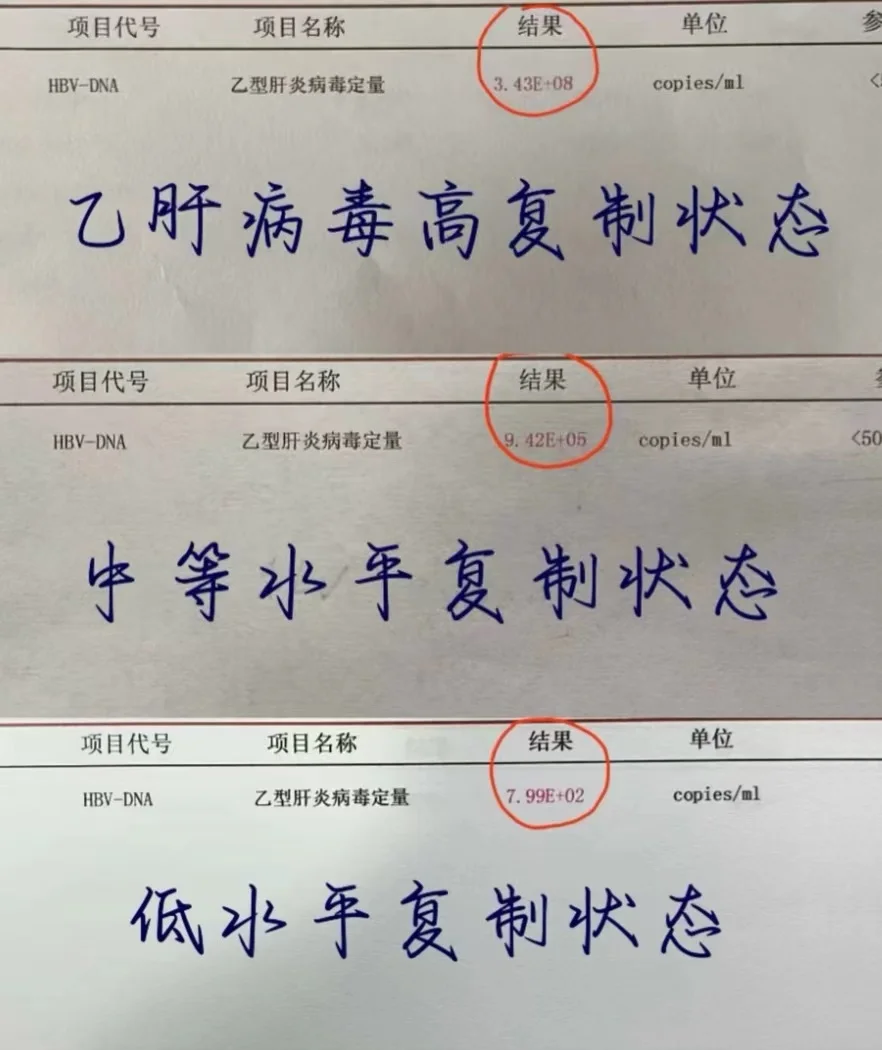 项目代号 项目名称 结果 单位 参
HBV-DNA 乙型肝炎病毒定量 3.43E+08 copies/ml <
乙肝病毒高复制状态
项目代号 项目名称 结果 单位
HBV-DNA 乙型肝炎病毒定量 9.42E+05 copies/ml <50
中等水平复制状态
项目代号 项目名称 结果 单位
HBV-DNA 乙型肝炎病毒定量 7.99E+02 copies/ml
低水平复制状态